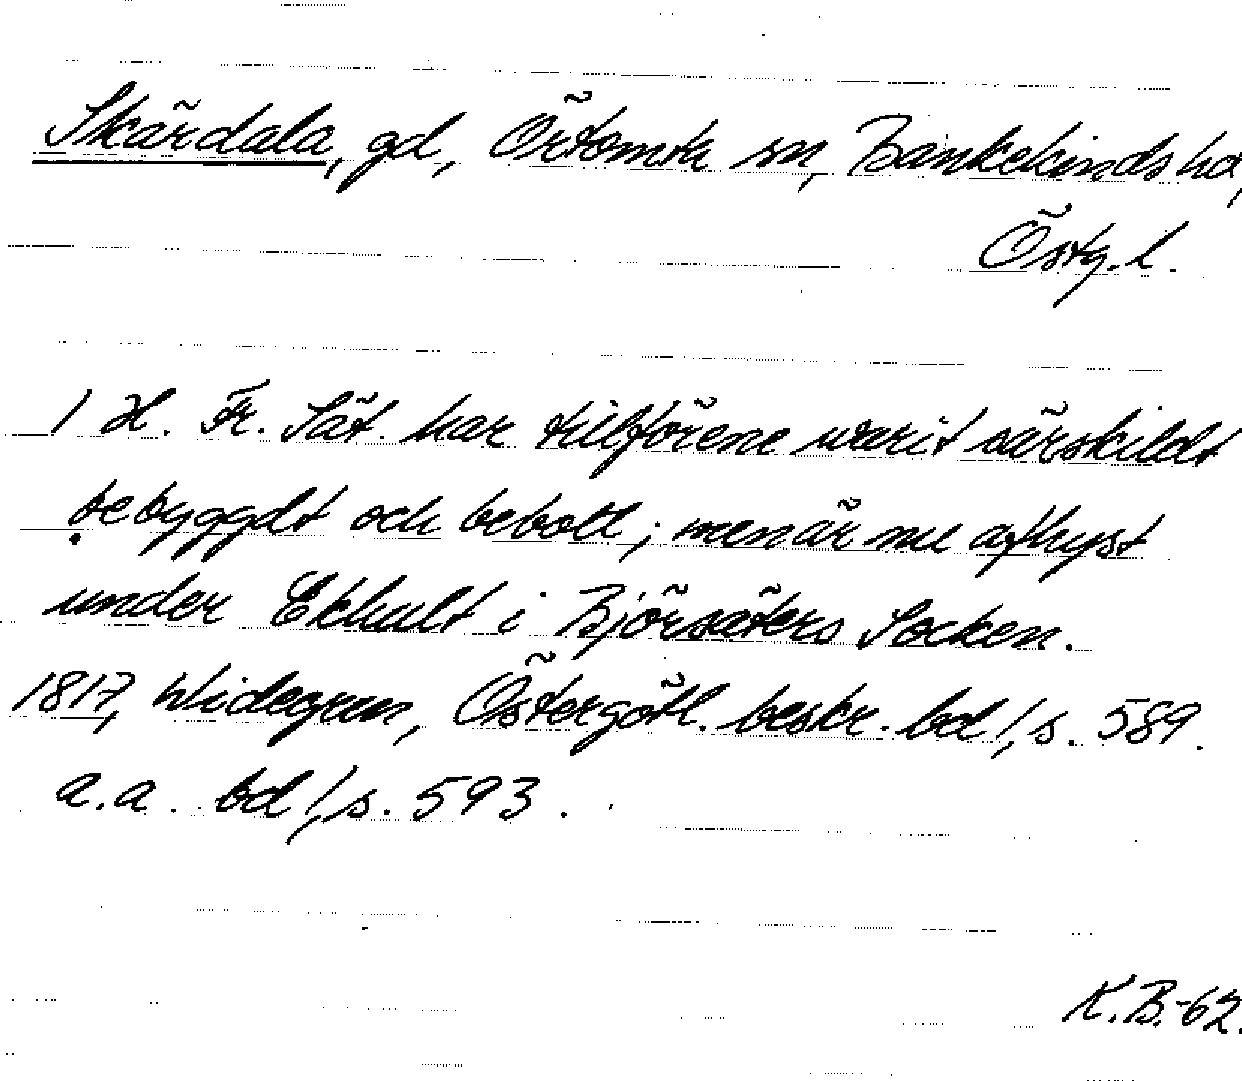 Skärdala, gd, Örtomta sn, Bankekinds hd,
Östg. l.
1 H. Fr. Sät. har tillförene warit särskildt
bebyggdt och bebott; men är nu afhyst
under Ekhult i Björsäters Socken.
1817, Widegren, Östergötl. beskr. bd 1, s. 589.
a.a. bd 1, s. 593.
K.B.-62.